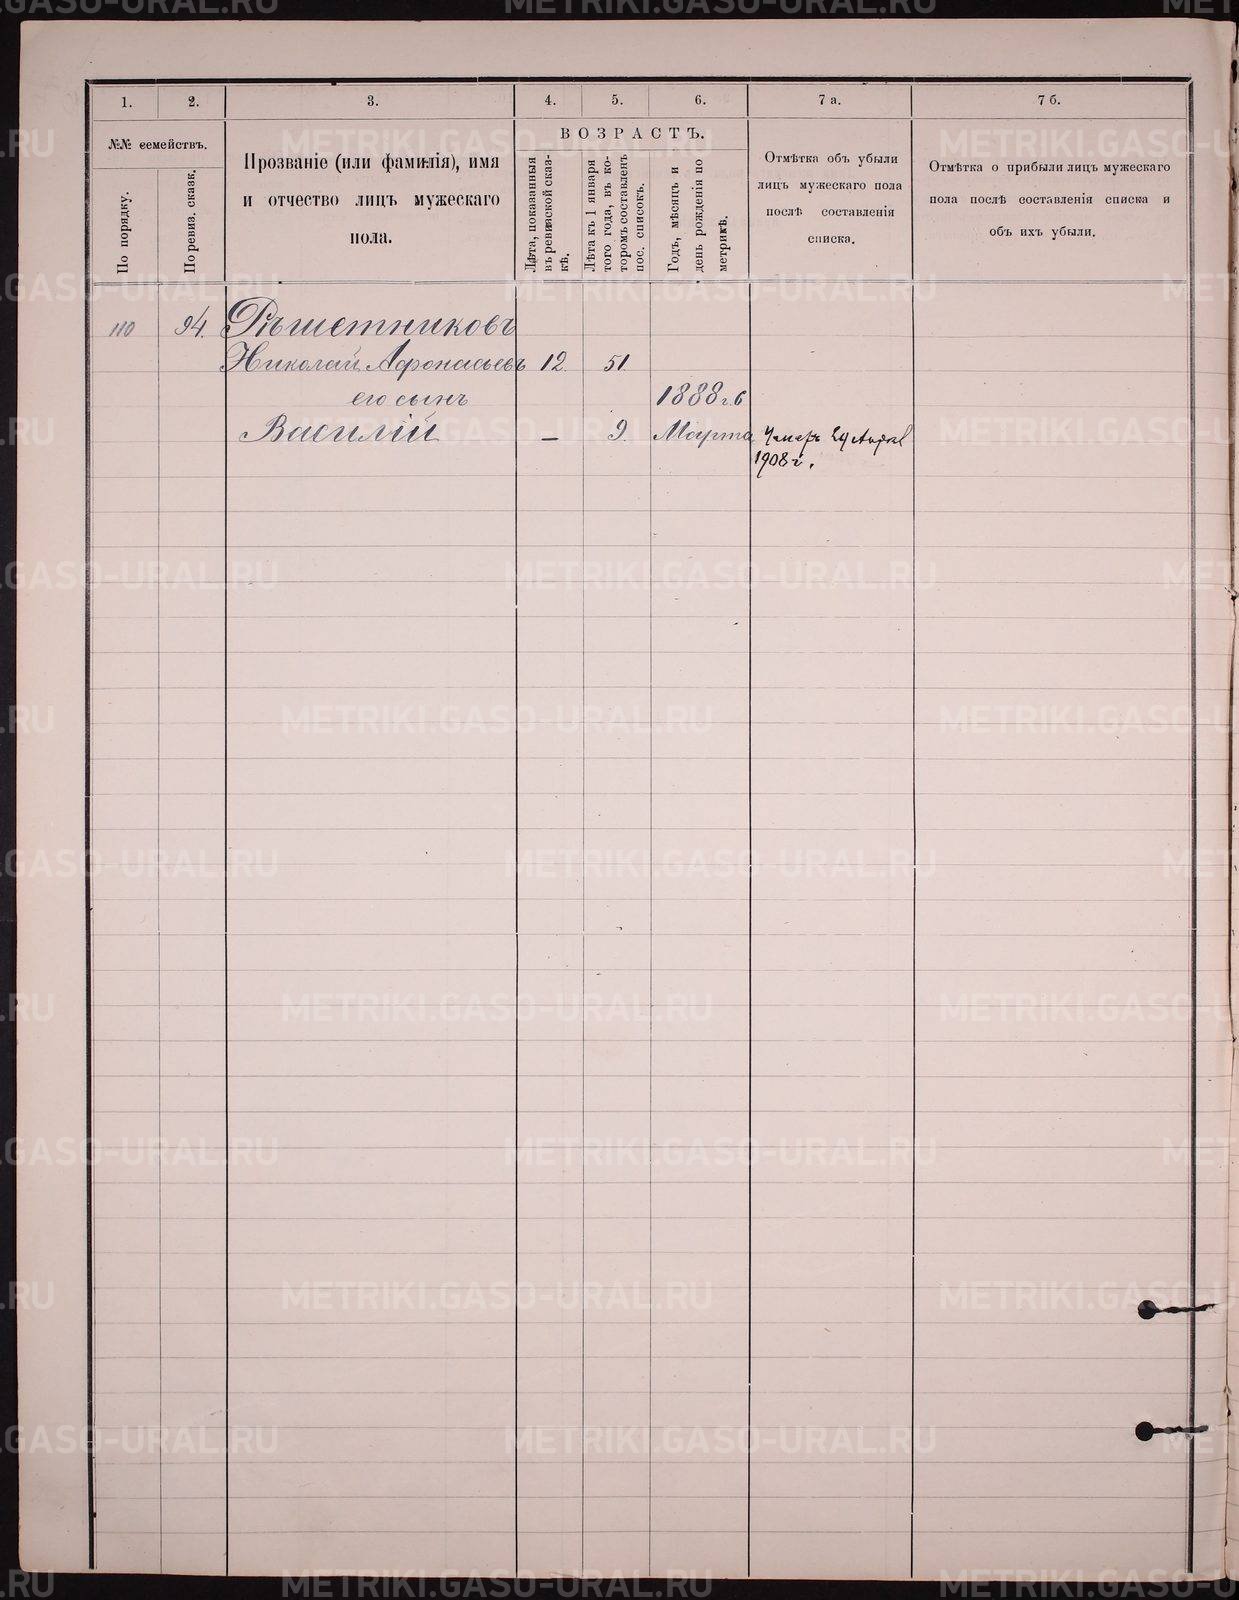 1. 2. 3. 4. 5. 6. 7 а. 7 б.
№№ семействъ.
По порядку.
По ревиз. сказк.
Прозваніе (или фамилія), имя
и отчество лицъ мужескаго
пола.
ВОЗРАСТЪ.
Лѣта, показанныя
въ ревизской сказ-
кѣ.
Лѣта къ 1 января
того года, въ ко-
торомъ составленъ
пос. списокъ.
Годъ, мѣсяцъ и
день рожденія по
метрикѣ.
Отмѣтка объ убыли
лицъ мужескаго пола
послѣ составленія
списка.
Отмѣтка о прибыли лицъ мужескаго
пола послѣ составленія списка и
объ ихъ убыли.
110 94. Рѣшетниковъ
Николай Афонасьевъ 12. 51.
его сынъ 1888 г. 6
Василій — 9. Марта Умеръ 29 Апрел
1908 г.
METRIKI.GASO-URAL.RU